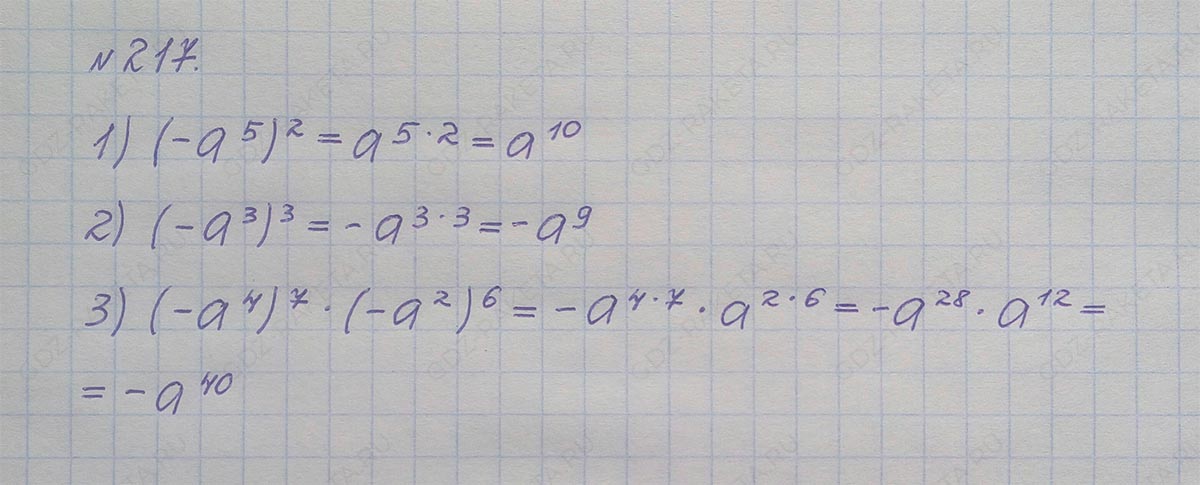 №217.
1) (-a⁵)² = a⁵˙² = a¹⁰
2) (-a³)³ = -a³˙³ = -a⁹
3) (-a⁴)⁷ · (-a²)⁶ = -a⁴˙⁷ · a²˙⁶ = -a²⁸ · a¹² =
= -a⁴⁰